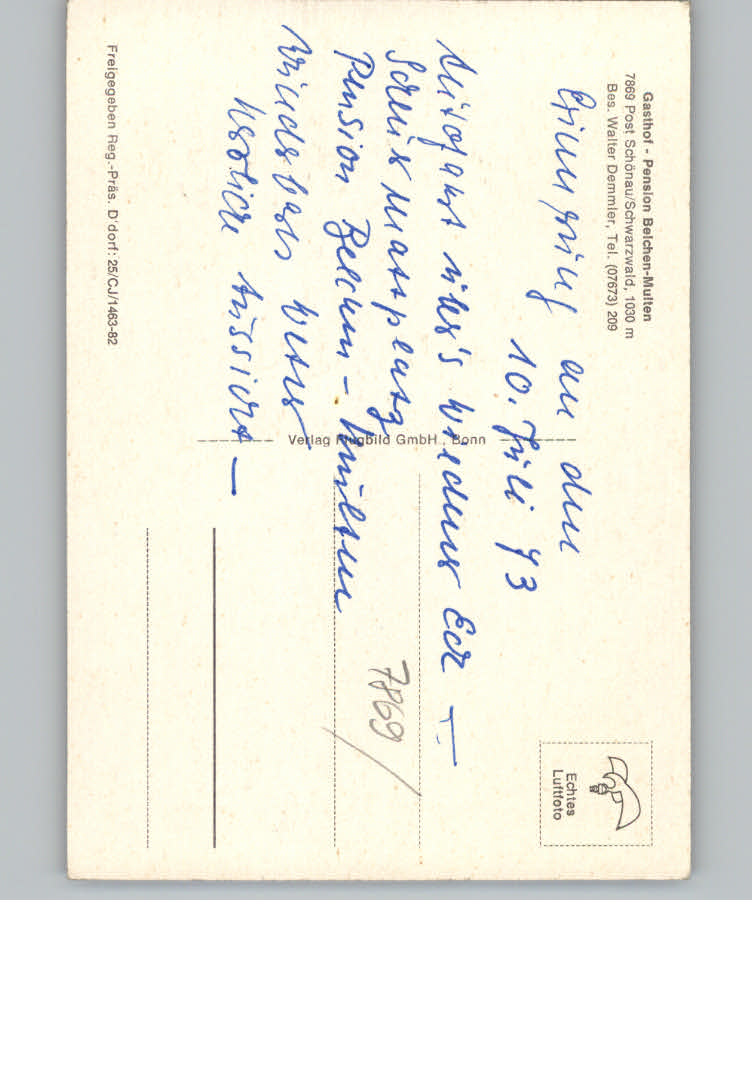 Gasthof - Pension Belchen-Multen
7869 Post Schönau/Schwarzwald, 1030 m
Bes. Walter Demmler, Tel. (07673) 209
Echtes
Luftfoto
Erinnerung an den
10. Juli 73
Autofahrt über's Wiedener Eck —
Pension Belchen - Multen
Wunderbares Wetter
herrliche Aussicht —
7869
Verlag Flugbild GmbH, Bonn
Freigegeben Reg.-Präs. D'dorf: 25/CJ/1463-82